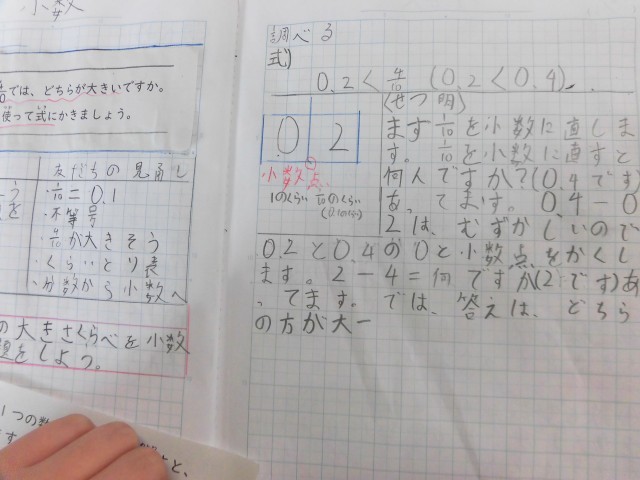 小数
では、どちらが大きいですか。
使って式にかきましょう。
友だちの見通し
・1/10=0.1
・不等号
・4/10が大きそう
・くらいとり表
・分数から小数へ
の大きさくらべを小数
題をしよう。
1つの数
調べる
式)
0.2<4/10 (0.2<0.4)
(せつ明)
0 2
小数点
1のくらい 1/10のくらい
(0.1のくらい)
ます4/10を小数に直しま
す。4/10を小数に直すと
何んですか?(0.4です)
あってます。0.4-0
2は、むずかしいので
0.2と0.4の0と小数点をかくし
ます。2-4=何ですか(2です)あ
ってます。では、答えは、どちら
の方が大